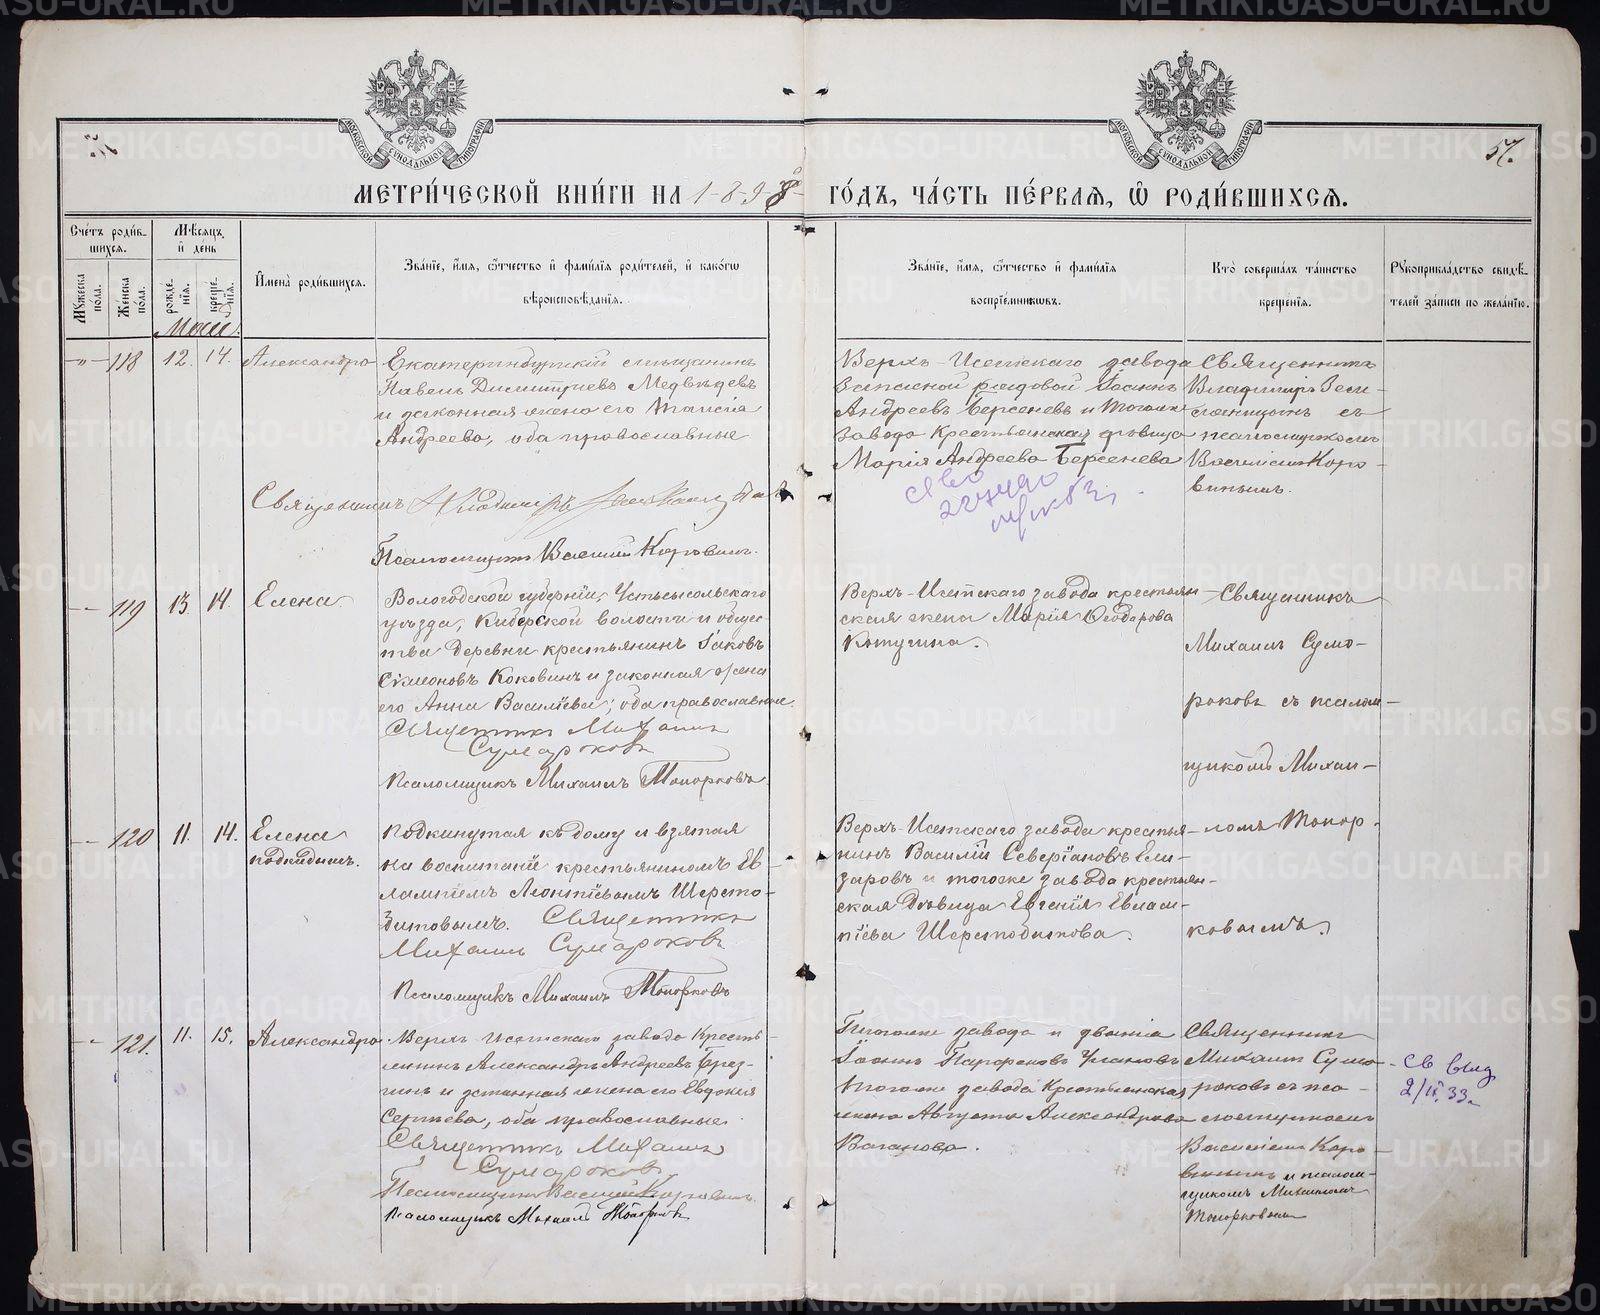 57.
МЕТРИ́ЧЕСКОЙ КНИ́ГИ НА 1898 ГО́ДЪ, ЧА́СТЬ ПЕ́РВАѦ, Ѡ РОДИ́ВШИХСѦ.
Сче́тъ роди́в-
шихсѧ.
Мꙋжеска пола.
Же́нска по́ла.
Мѣ́сѧцъ и де́нь
рожде́-
нїѧ.
креще́-
нїѧ.
И҆мена̀ роди́вшихсѧ.
Зва́нїе, и҆́мѧ, ѻ҆́тчество и҆ фами́лїѧ роди́телей, и҆ како́гѡ
вѣроисповѣ́данїѧ.
Зва́нїе, и҆́мѧ, ѻ҆́тчество и҆ фами́лїѧ
воспрїе́мникѡвъ.
Кто̀ соверша́лъ та́инство
креще́нїѧ.
Рꙋкоприкла́дство свидѣ́-
телей за́писи по жела́нїю.
Маи.
118 12. 14. Александра
Екатеринбургскій мѣщанинъ
Павелъ Димитріевъ Медвѣдевъ
и законная жена его Таисія
Андреева, оба православные
Верхъ-Исетскаго завода
запасной рядовой Іоаннъ
Андреевъ Берсеневъ и тогоже
завода крестьянская дѣвица
Марія Андреева Берсенева
Священникъ
Владиміръ Зем-
ляницынъ съ
псаломщикомъ
Василіемъ Коро-
винымъ.
Священникъ Владиміръ
Псаломщикъ Василій Коровинъ.
119 13. 14. Елена
Вологодской губерніи, Устьсысольскаго
уѣзда, Киберской волости и общес-
тва деревни крестьянинъ Іаковъ
Симоновъ Коковинъ и законная жена
его Анна Васильева; оба православные.
Священникъ Михаилъ
Сумароковъ
Псаломщикъ Михаилъ Топорковъ
Верхъ-Исетскаго завода крестьян-
ская жена Марія Ѳеодорова
Котугина.
Священникъ
Михаилъ Сумо-
роковъ съ псалом-
щикомъ Михаи-
ломъ Топор-
ковымъ.
120 11. 14. Елена
подкидышъ.
Подкинутая къ дому и взятая
на воспитаніе крестьяниномъ Ев-
лампіемъ Леонтіевымъ Шерсто-
битовымъ. Священникъ
Михаилъ Сумароковъ
Псаломщикъ Михаилъ Топорковъ
Верхъ-Исетскаго завода крестья-
нинъ Василій Северіановъ Ели-
заровъ и тогоже завода крестьян-
ская дѣвица Евгенія Евлам-
піева Шерстобитова.
121. 11. 15. Александра
Верхъ-Исетскаго завода кресть-
янинъ Александръ Андреевъ Брез-
гинъ и законная жена его Евдокія
Сергѣева, оба православные
Священникъ Михаилъ
Сумароковъ
Псаломщикъ Василій Коровинъ.
Псаломщикъ Михаилъ Топорковъ
Тогоже завода и званія
Іоаннъ Парфеновъ Улановъ
тогоже завода крестьянская
жена Августа Александрова
Ваганова.
Священникъ
Михаилъ Сума-
роковъ съ пса-
ломщикомъ
Василіемъ Коро-
винымъ и псалом-
щикомъ Михаиломъ
Топорковымъ
Св выд
2/II 33.
METRIKI.GASO-URAL.RU